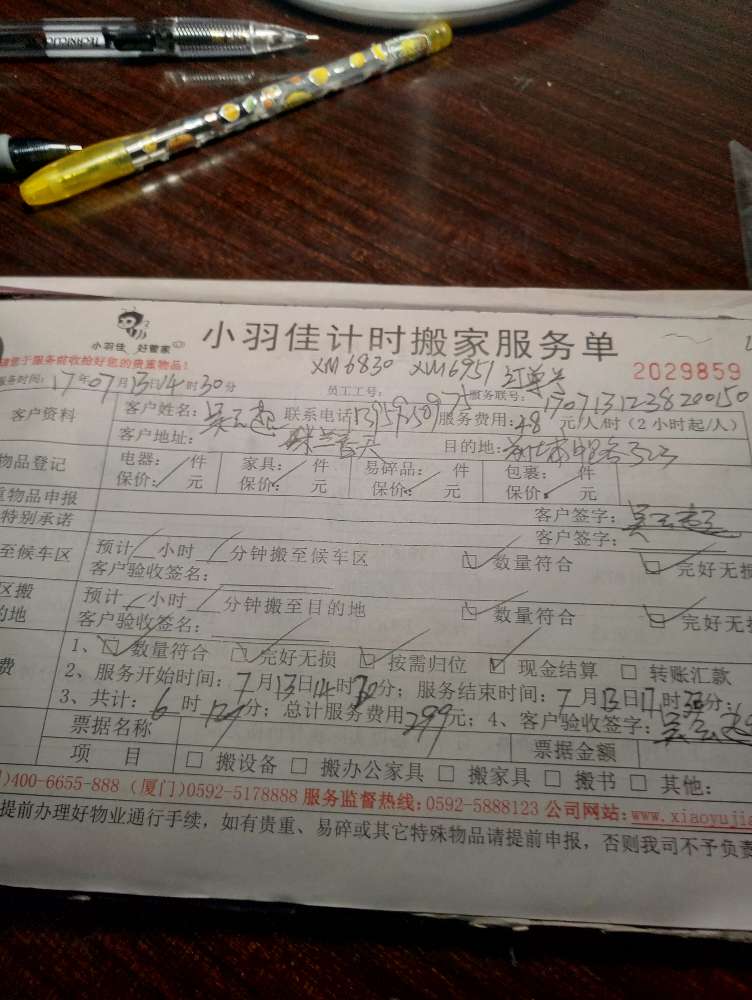 TECHNICLICK
小羽佳 好管家
小羽佳计时搬家服务单
请于服务前收给好您的贵重物品！
XM6830 XM6951
2029859
服务时间：17年07月13日14时30分
员工工号：
服务联号：170713123820015 0
客户资料
客户姓名：
联系电话
服务费用：48元/人/时（2小时起/人）
客户地址：
目的地：
物品登记
电器： 件
保价： 元
家具： 件
保价： 元
易碎品： 件
保价： 元
包裹： 件
保价： 元
重物品申报
客户签字：
特别承诺
客户签字：
至候车区
预计 小时 分钟搬至候车区
数量符合
完好无损
客户验收签名：
区搬
的地
预计 小时 分钟搬至目的地
数量符合
完好无损
客户验收签名：
费
1、 数量符合 完好无损 按需归位 现金结算 转账汇款
2、服务开始时间：7月13日14时30分；服务结束时间：7月13日17时 分；
3、共计：6时 分；总计服务费用299元；4、客户验收签字：
票据名称
票据金额
项 目
搬设备 搬办公家具 搬家具 搬书 其他：
)400-6655-888 (厦门)0592-5178888 服务监督热线：0592-5888123 公司网站：www.xiaoyujia
提前办理好物业通行手续，如有贵重、易碎或其它特殊物品请提前申报，否则我司不予负责